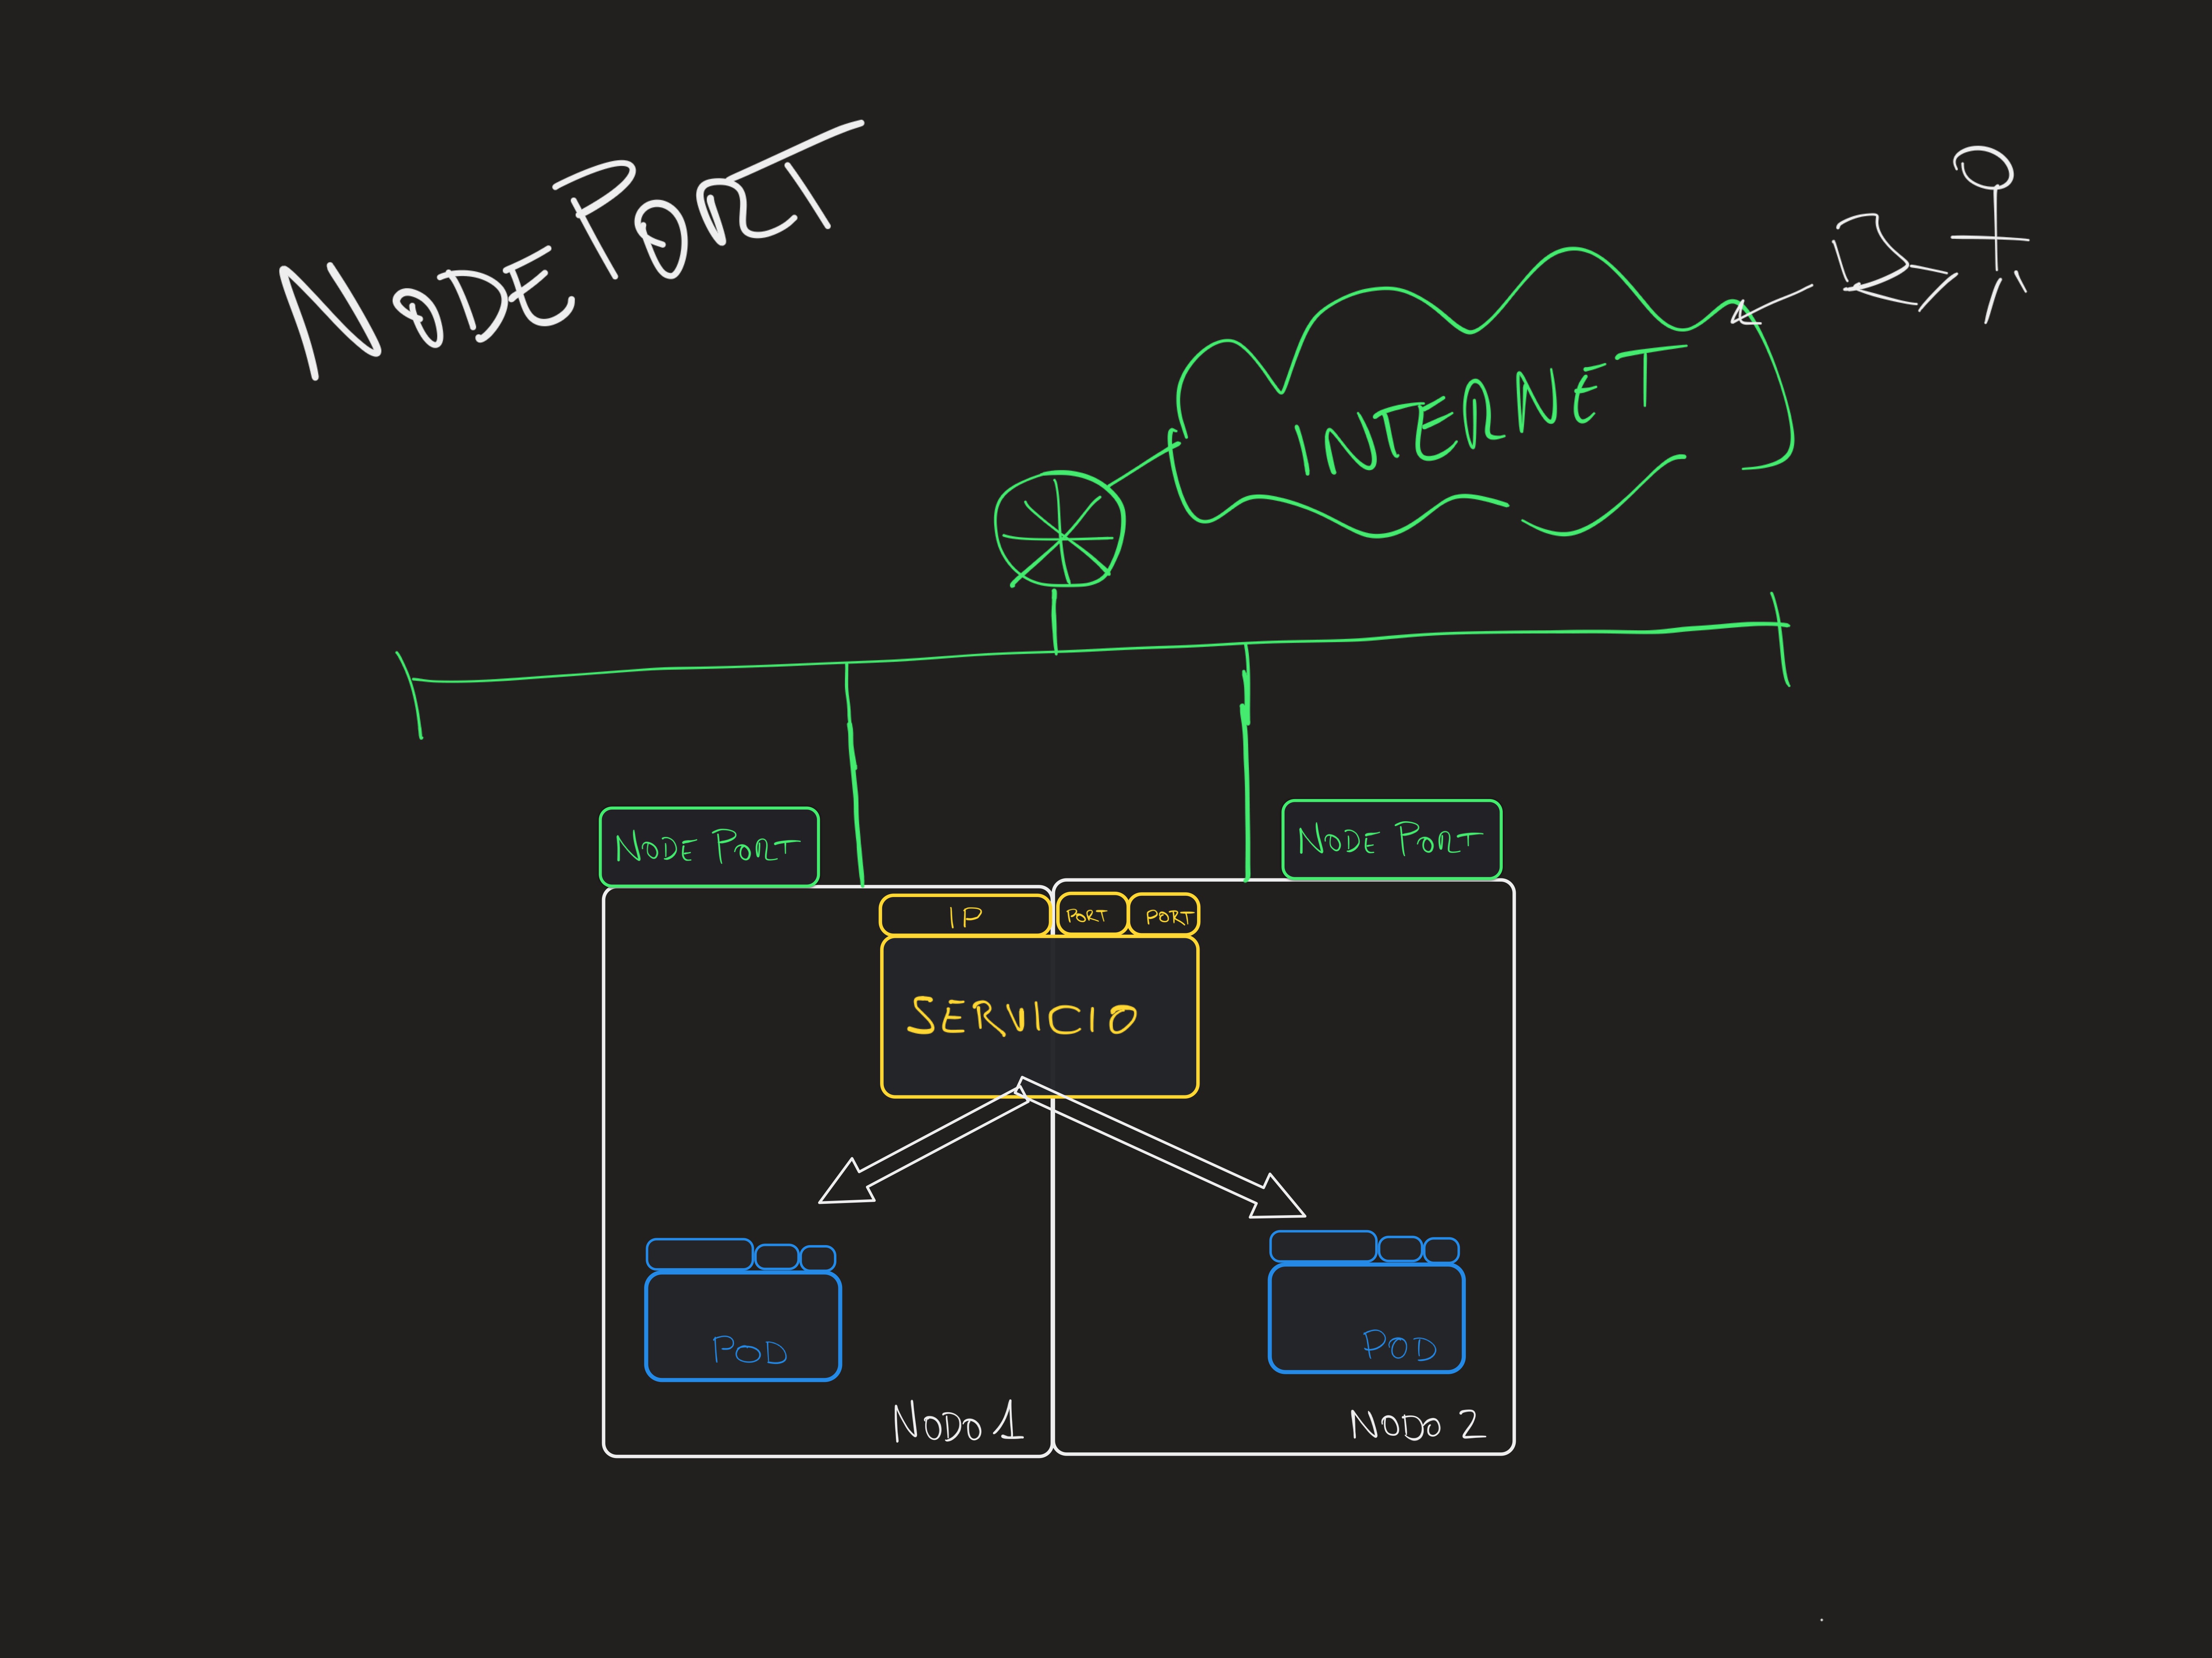 NODEPORT
INTERNET
NODE PORT
NODE PORT
IP
PORT
PORT
SERVICIO
POD
POD
NODO 1
NODO 2